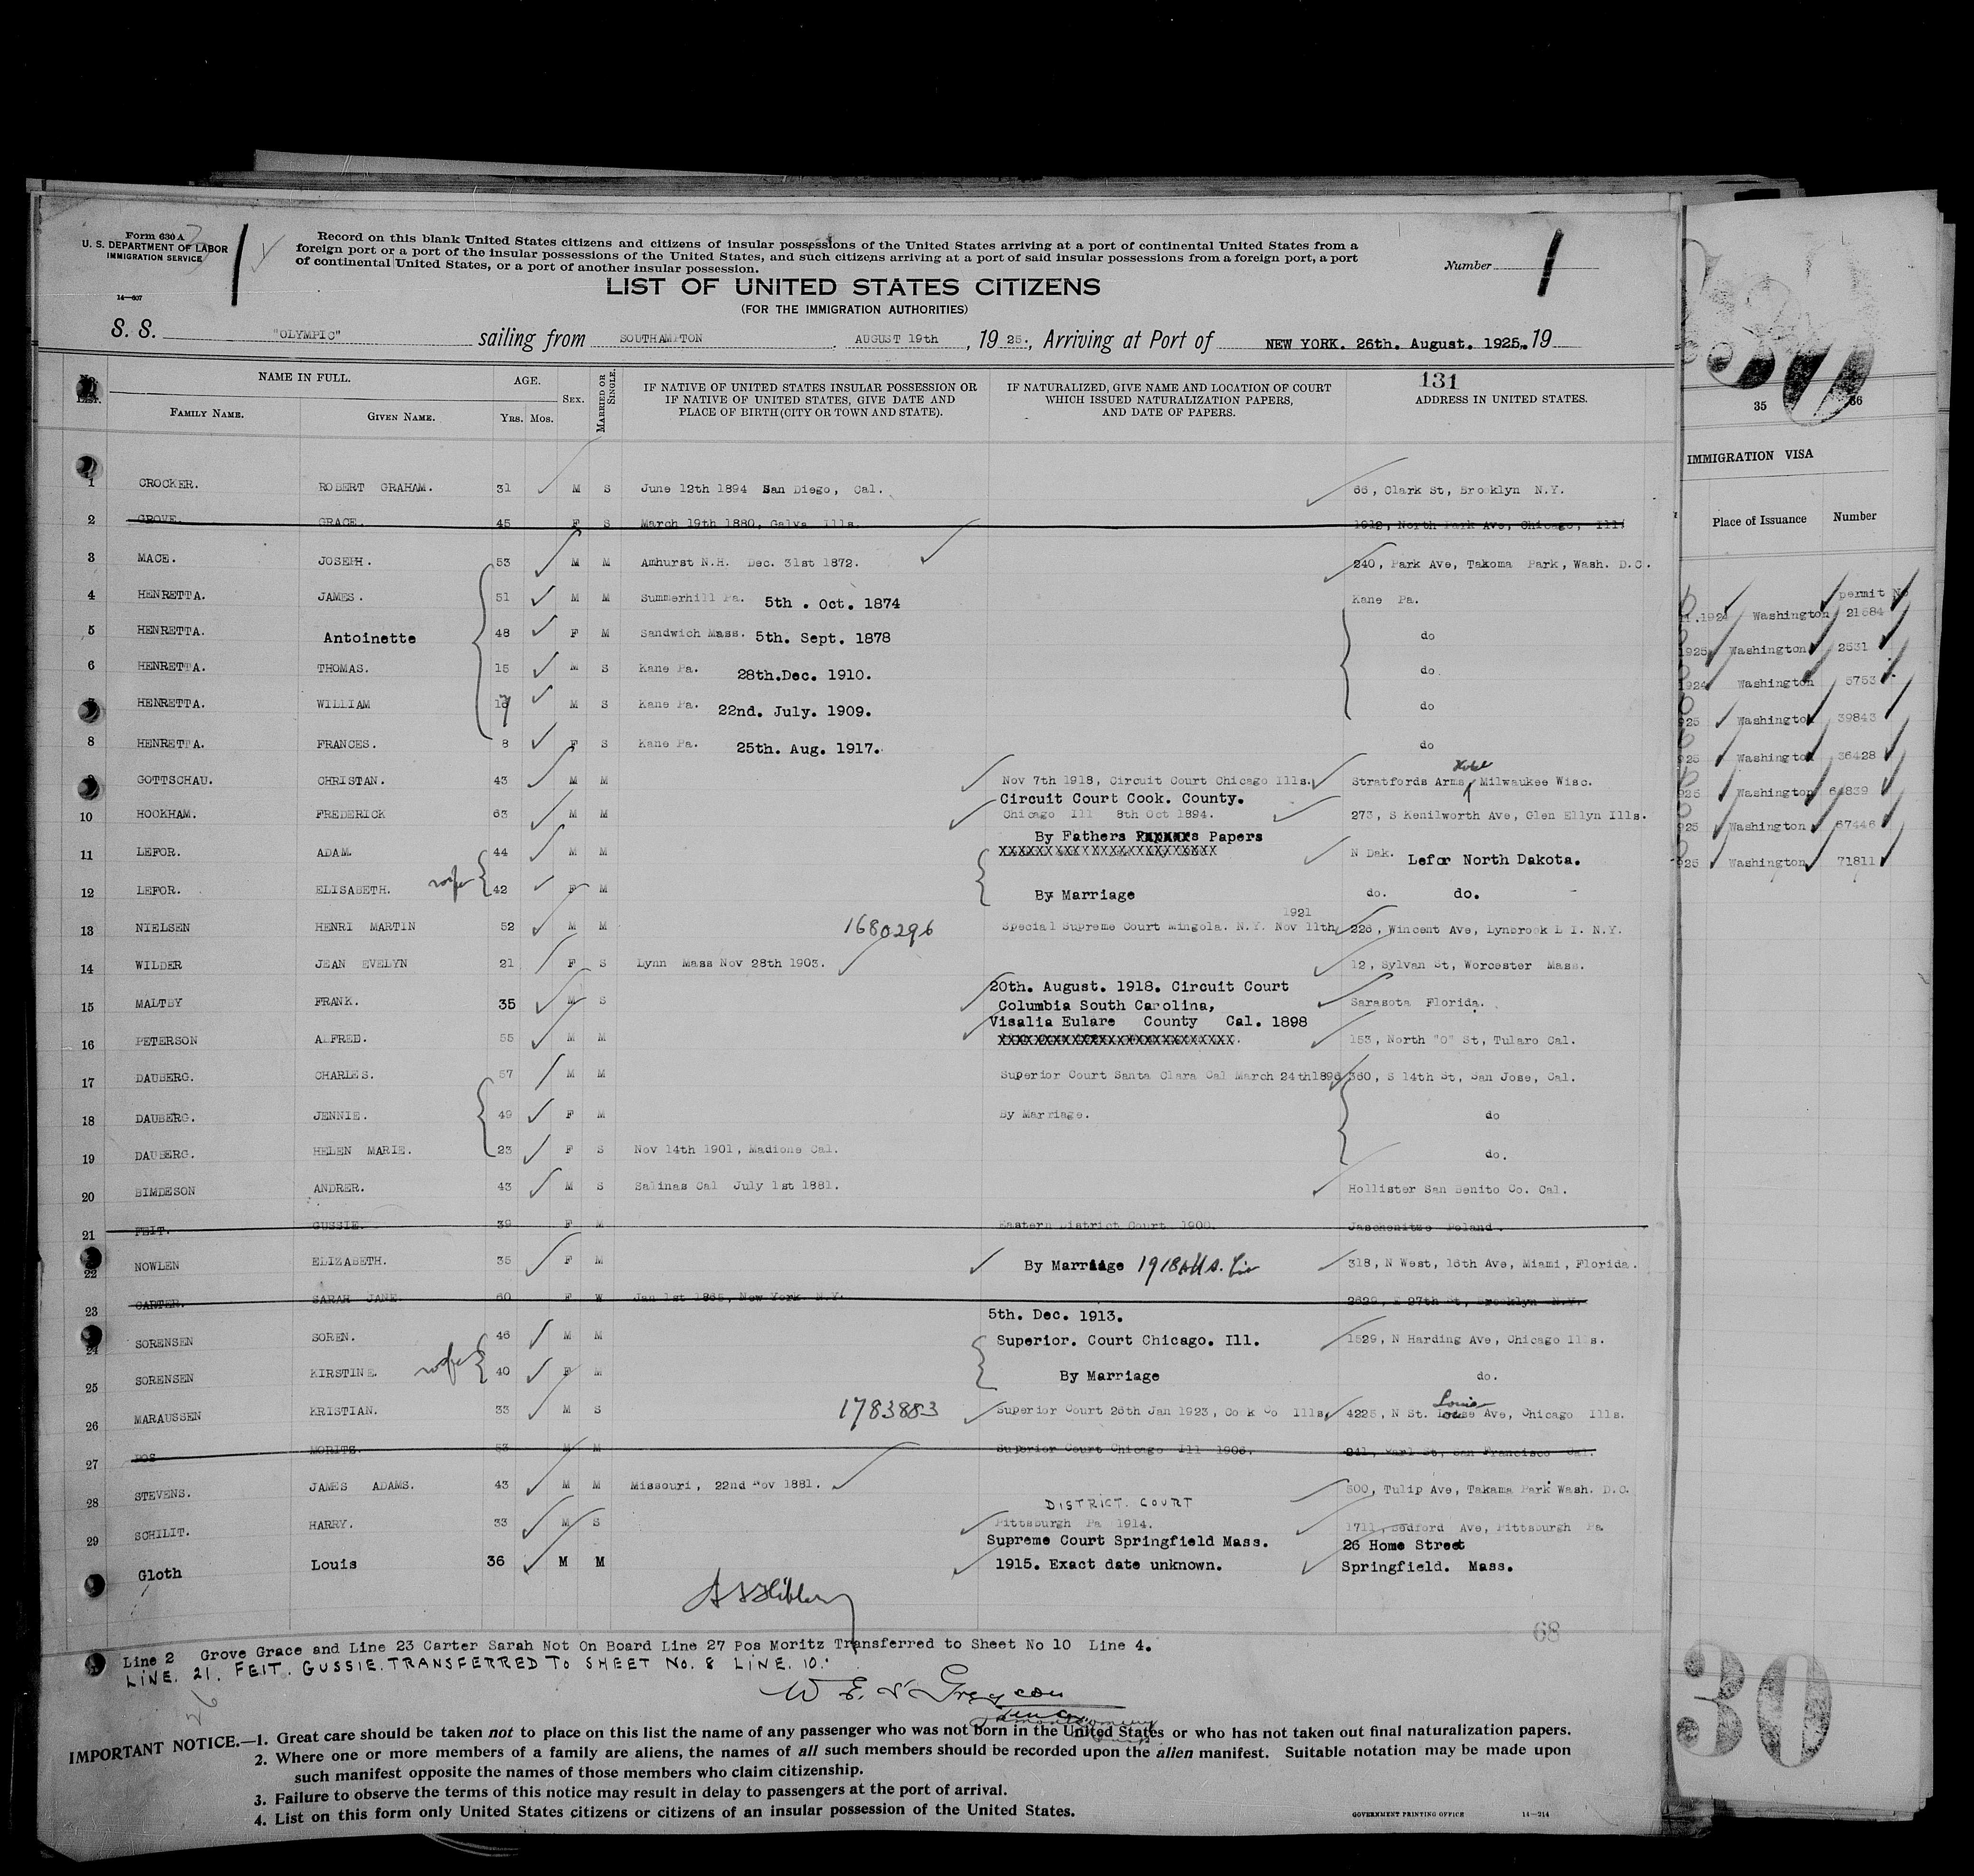 Form 630 A
U. S. DEPARTMENT OF LABOR
IMMIGRATION SERVICE
14—607
Record on this blank United States citizens and citizens of insular possessions of the United States arriving at a port of continental United States from a
foreign port or a port of the insular possessions of the United States, and such citizens arriving at a port of said insular possessions from a foreign port, a port
of continental United States, or a port of another insular possession.
Number 1
LIST OF UNITED STATES CITIZENS
(FOR THE IMMIGRATION AUTHORITIES)
S. S. "OLYMPIC" sailing from SOUTHAMPTON . AUGUST 19th , 19 25., Arriving at Port of NEW YORK. 26th. August. 1925. 19
NAME IN FULL. AGE. Sex. MARRIED OR SINGLE. IF NATIVE OF UNITED STATES INSULAR POSSESSION OR IF NATIVE OF UNITED STATES, GIVE DATE AND PLACE OF BIRTH (CITY OR TOWN AND STATE). IF NATURALIZED, GIVE NAME AND LOCATION OF COURT WHICH ISSUED NATURALIZATION PAPERS, AND DATE OF PAPERS. 131 ADDRESS IN UNITED STATES.
FAMILY NAME. GIVEN NAME. Yrs. Mos.
1 CROCKER. ROBERT GRAHAM. 31 M S June 12th 1894 San Diego, Cal. 66, Clark St, Brooklyn N.Y.
2 GROVE. GRACE. 45 F S March 19th 1880, Galva Ills. 1912, North Park Ave, Chicago, Ill.
3 MACE. JOSEPH. 53 M M Amhurst N.H. Dec. 31st 1872. 240, Park Ave, Takoma Park, Wash. D.C.
4 HENRETTA. JAMES. 51 M M Summerhill Pa. 5th . Oct. 1874 Kane Pa.
5 HENRETTA. Antoinette 48 F M Sandwich Mass. 5th. Sept. 1878 do
6 HENRETTA. THOMAS. 15 M S Kane Pa. 28th.Dec. 1910. do
7 HENRETTA. WILLIAM M S Kane Pa. 22nd. July. 1909. do
8 HENRETTA. FRANCES. 8 F S Kane Pa. 25th. Aug. 1917. do
9 GOTTSCHAU. CHRISTAN. 43 M M Nov 7th 1918, Circuit Court Chicago Ills. Stratfords Arms Hotel Milwaukee Wisc.
Circuit Court Cook. County.
10 HOOKHAM. FREDERICK 63 M M Chicago Ill 8th Oct 1894. 273, S Kenilworth Ave, Glen Ellyn Ills.
By Fathers Papers
11 LEFOR. ADAM. 44 M M N Dak. Lefor North Dakota.
12 LEFOR. ELISABETH. wife 42 F M By Marriage do. do.
1921
13 NIELSEN HENRI MARTIN 52 M M 1680296 Special Supreme Court Mingola. N.Y. Nov 11th 226, Wincent Ave, Lynbrook L I. N.Y.
14 WILDER JEAN EVELYN 21 F S Lynn Mass Nov 28th 1903. 12, Sylvan St, Worcester Mass.
20th. August. 1918. Circuit Court
15 MALTBY FRANK. 35 M S Columbia South Carolina, Sarasota Florida.
Visalia Eulare County Cal. 1898
16 PETERSON ALFRED. 55 M M 153, North "O" St, Tularo Cal.
17 DAUBERG. CHARLES. 57 M M Superior Court Santa Clara Cal March 24th1896 360, S 14th St, San Jose, Cal.
18 DAUBERG. JENNIE. 49 F M By Marriage. do
19 DAUBERG. HELEN MARIE. 23 F S Nov 14th 1901, Madione Cal. do.
20 BIMDESON ANDRER. 43 M S Salinas Cal July 1st 1881. Hollister San Benito Co. Cal.
21 FEIT. GUSSIE. 39 F M Eastern District Court 1900. Poland.
22 NOWLEN ELIZABETH. 35 F M By Marriage 1918 318, N West, 18th Ave, Miami, Florida.
23 CARTER. SARAH JANE. 60 F W Jan 1st 1865, New York. N.Y. 2629, E 27th St, Brooklyn N.Y.
5th. Dec. 1913.
24 SORENSEN SOREN. 46 M M Superior. Court Chicago. Ill. 1529, N Harding Ave, Chicago Ills.
25 SORENSEN KIRSTINE. wife 40 F M By Marriage do.
26 MARAUSSEN KRISTIAN. 33 M S 1783883 Superior Court 26th Jan 1923, Cook Co Ills. 4225, N St. Louis Ave, Chicago Ills.
27 POS MORITZ. 53 M M Superior Court Chicago Ill 1906. 241, Earl St, San Francisco Cal.
28 STEVENS. JAMES ADAMS. 43 M M Missouri, 22nd Nov 1881. 500, Tulip Ave, Takama Park Wash. D.C.
DISTRICT. COURT
29 SCHILIT. HARRY. 33 M S Pittsburgh Pa 1914. 1711, Bedford Ave, Pittsburgh Pa
Supreme Court Springfield Mass. 26 Home Street
Gloth Louis 36 M M 1915. Exact date unknown. Springfield. Mass.
68
Line 2 Grove Grace and Line 23 Carter Sarah Not On Board Line 27 Pos Moritz Transferred to Sheet No 10 Line 4.
LINE. 21. FEIT. GUSSIE. TRANSFERRED TO SHEET NO. 8 LINE. 10.
IMPORTANT NOTICE.—1. Great care should be taken not to place on this list the name of any passenger who was not born in the United States or who has not taken out final naturalization papers.
2. Where one or more members of a family are aliens, the names of all such members should be recorded upon the alien manifest. Suitable notation may be made upon
such manifest opposite the names of those members who claim citizenship.
3. Failure to observe the terms of this notice may result in delay to passengers at the port of arrival.
4. List on this form only United States citizens or citizens of an insular possession of the United States.
GOVERNMENT PRINTING OFFICE 14—214
35 36
IMMIGRATION VISA
Place of Issuance Number
permit No
1924 Washington 21584
1925 Washington 2531
1924 Washington 5753
925 Washington 39843
925 Washington 36428
925 Washington 64839
925 Washington 67446
925 Washington 71811
30